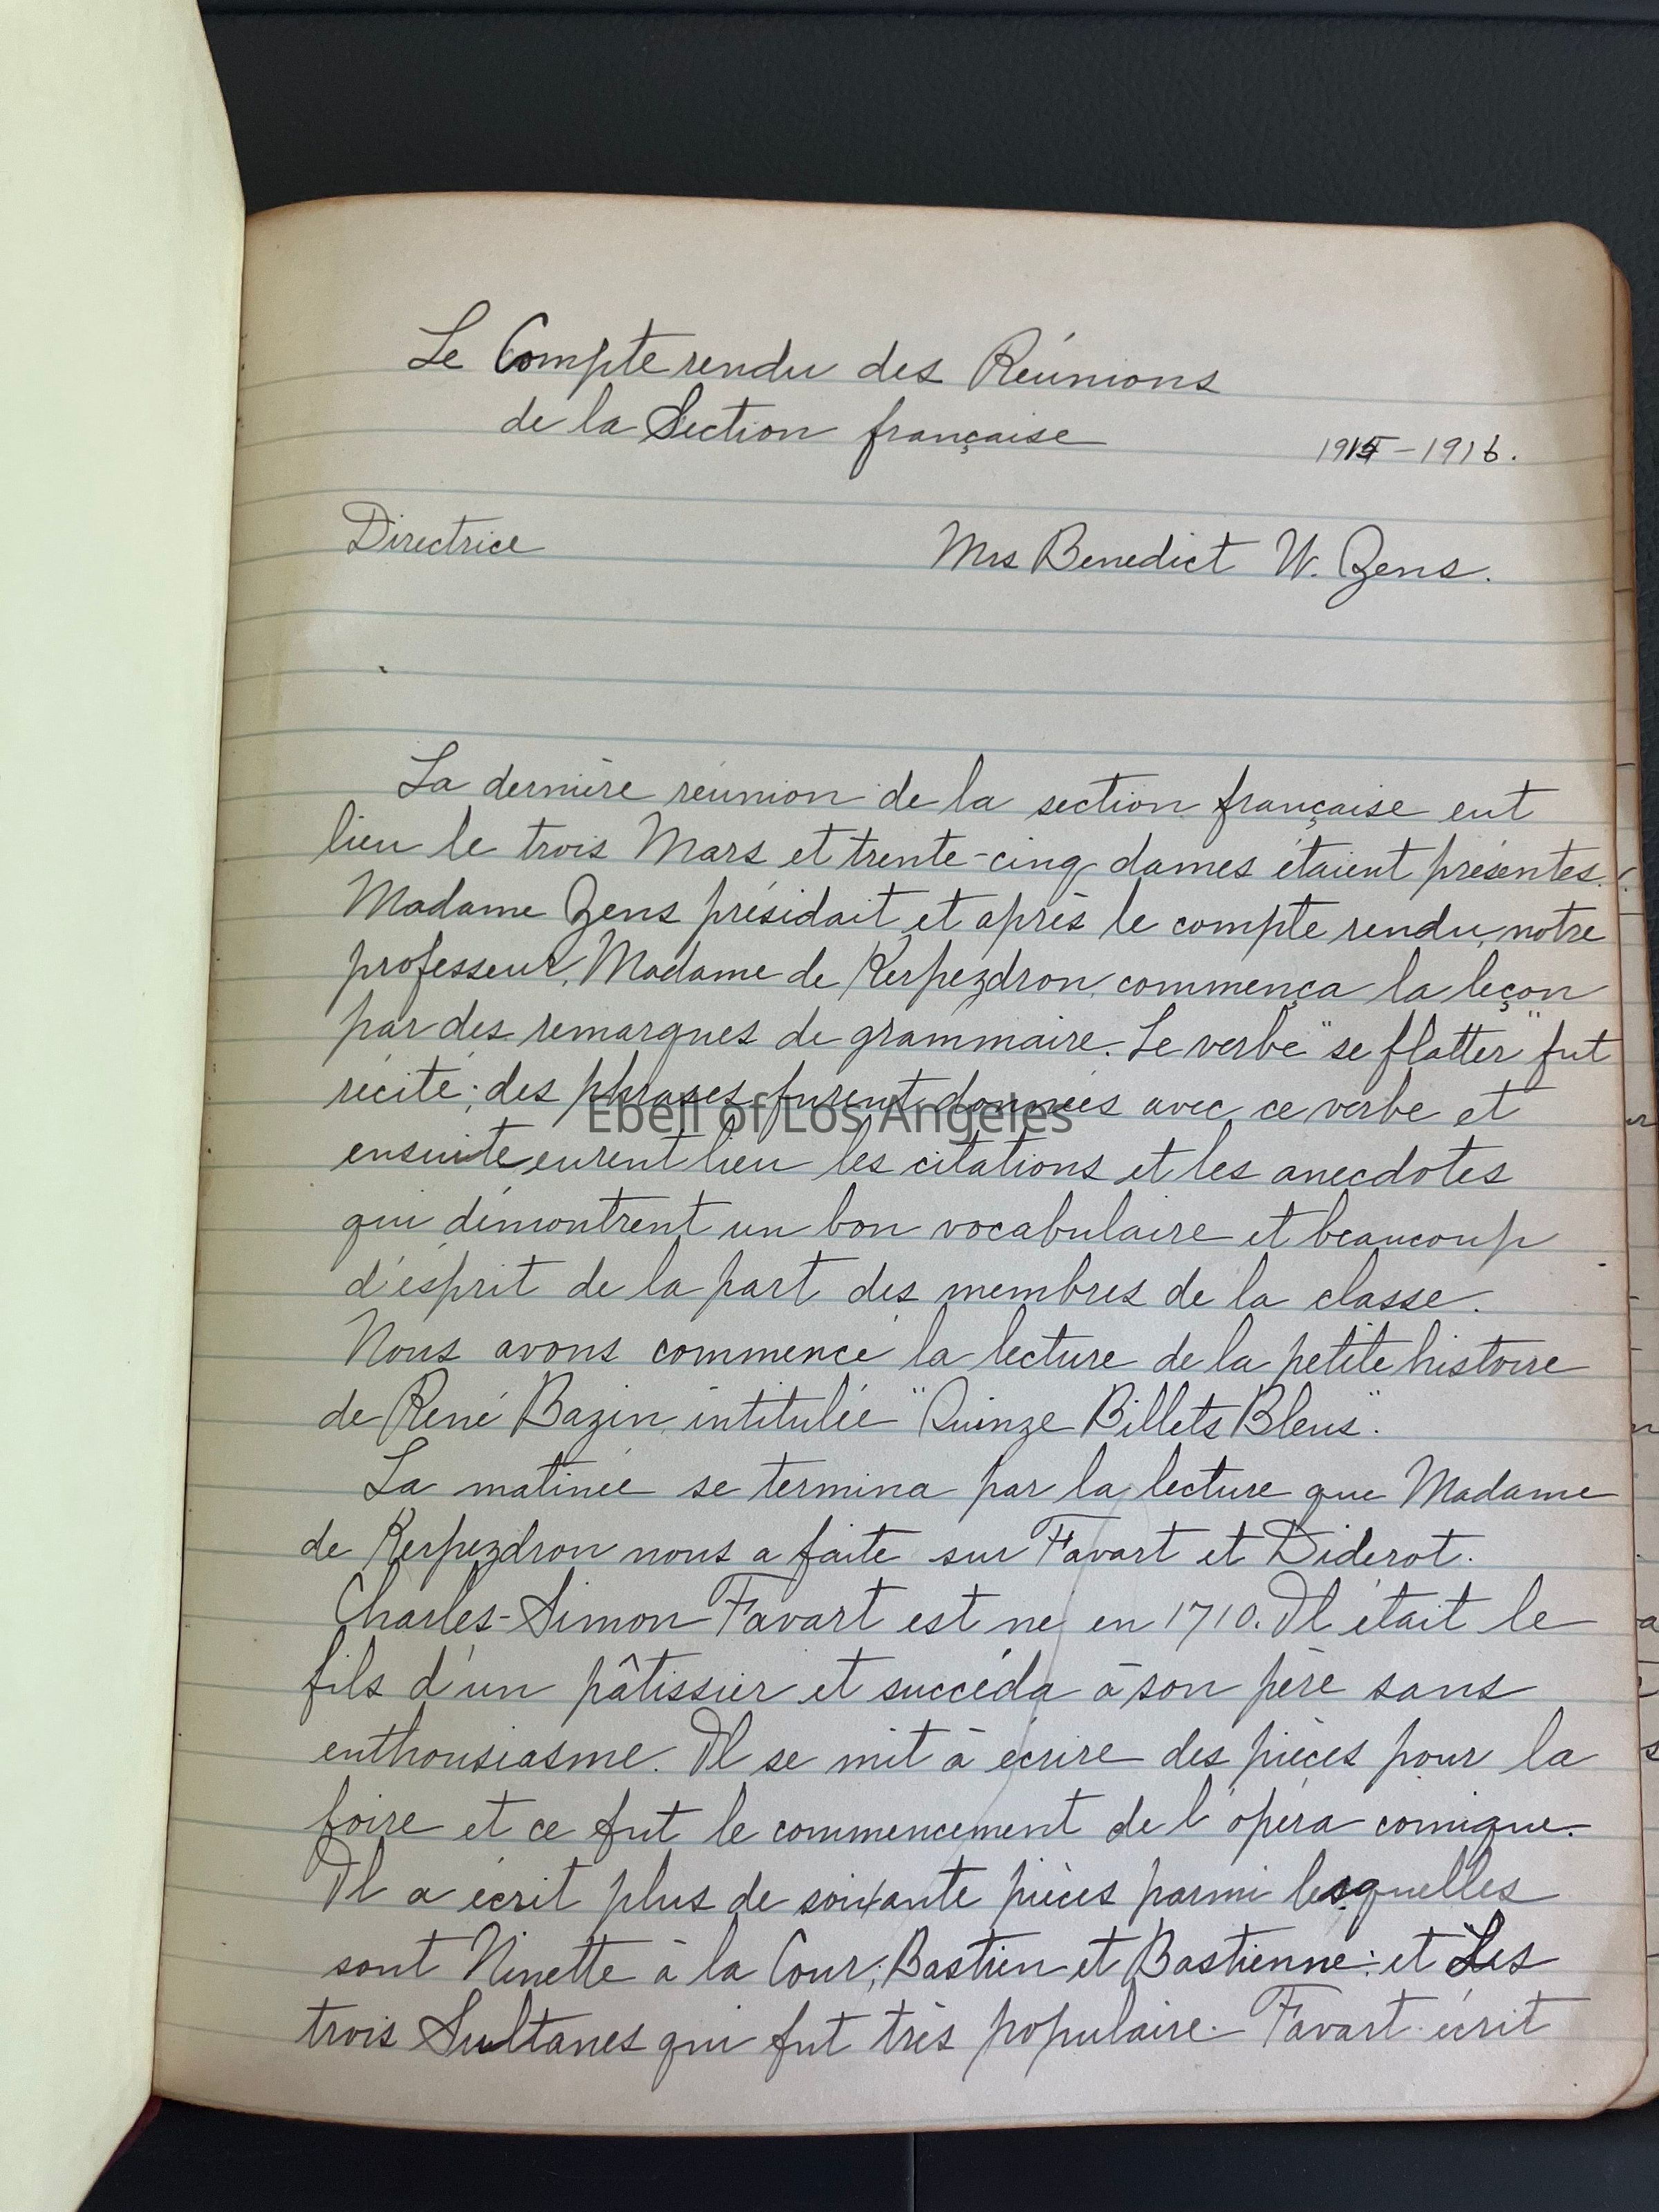 Le Compte rendu des Réunions
de la Section française
1915-1916.
Directrice Mrs Benedict W. Zens.
La dernière réunion de la section française eut
lieu le trois Mars et trente-cinq dames étaient présentes.
Madame Zens présidait et après le compte rendu, notre
professeur, Madame de Kerpezdron, commença la leçon
par des remarques de grammaire. Le verbe "se flatter" fut
récité; des phrases furent données avec ce verbe et
Ebell of Los Angeles
ensuite eurent lieu les citations et les anecdotes
qui démontrent un bon vocabulaire et beaucoup
d'esprit de la part des membres de la classe.
Nous avons commencé la lecture de la petite histoire
de René Bazin, intitulée "Quinze Billets Bleus".
La matinée se termina par la lecture que Madame
de Kerpezdron nous a faite sur Favart et Diderot.
Charles-Simon Favart est né en 1710. Il était le
fils d'un pâtissier et succéda à son père sans
enthousiasme. Il se mit à écrire des pièces pour la
foire et ce fut le commencement de l'opéra comique.
Il a écrit plus de soixante pièces parmi lesquelles
sont Ninette à la Cour; Bastien et Bastienne: et Les
trois Sultanes qui fut très populaire. Favart écrit